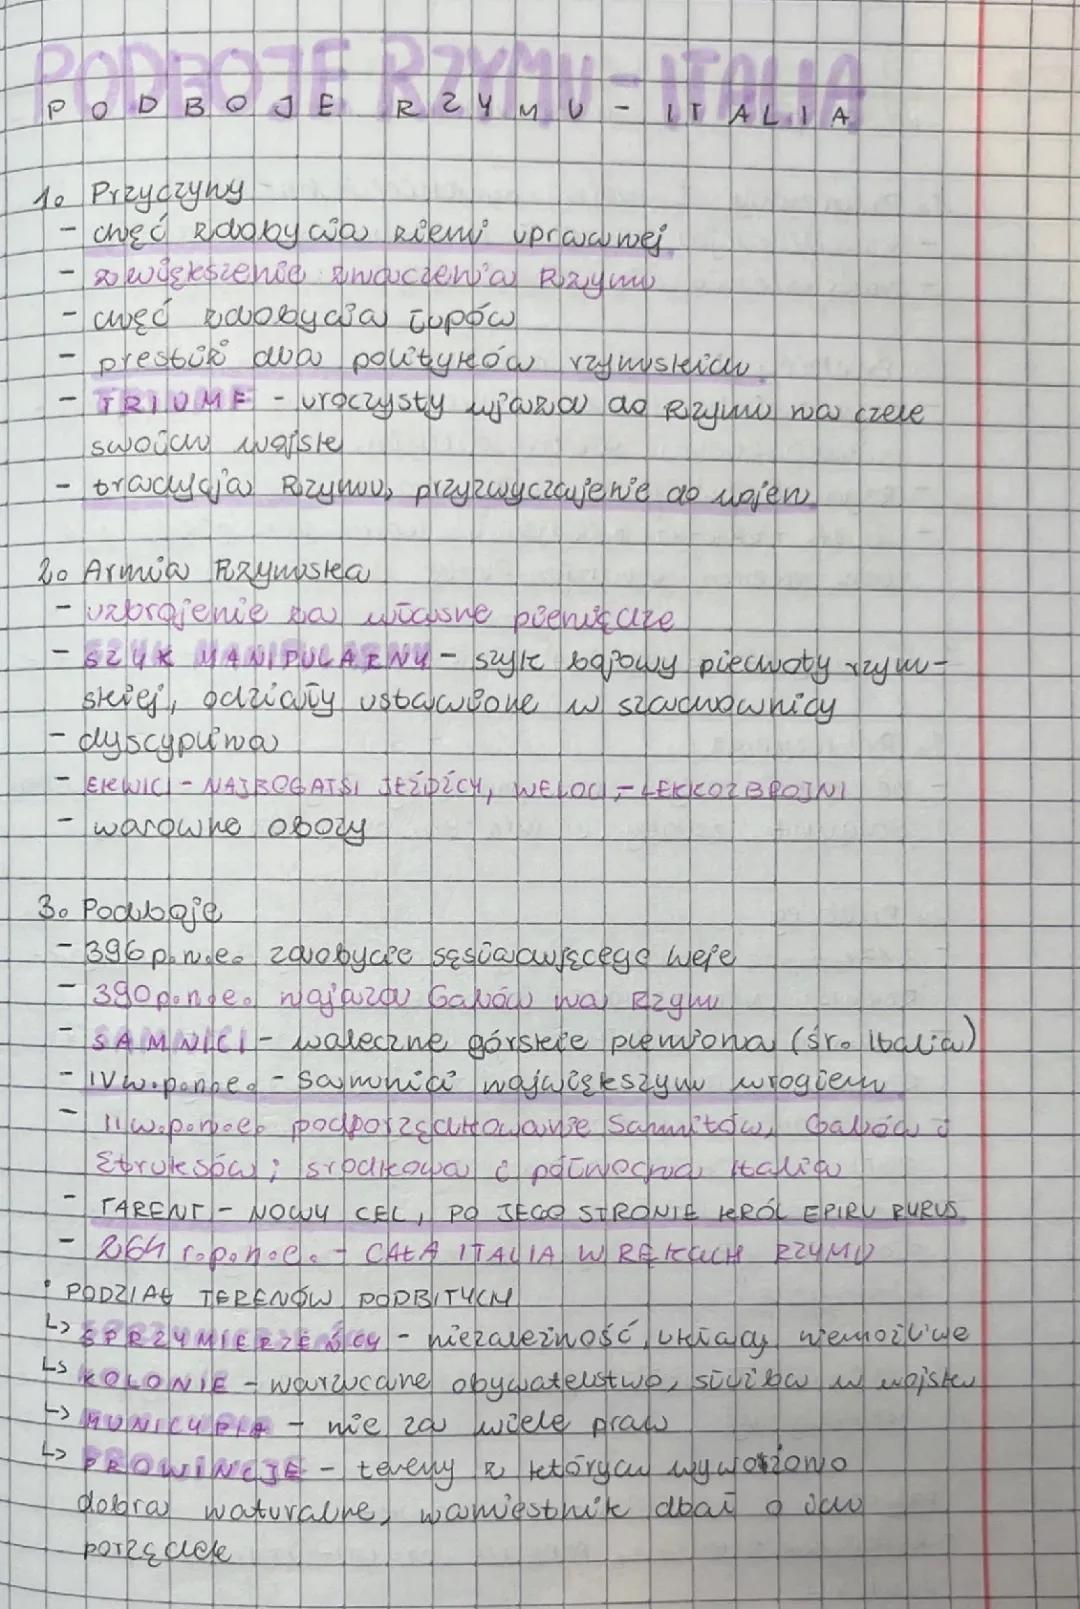 PODBOJE RZYMU - ITALIA
PODBOJE RZYMU - ITALIA
1. Przyczyny
- chęć zdobycia ziemi uprawnej
- zwiększenie znaczenia Rzymu
- chęć zdobycia łupów
- prestiż dla polityków rzymskich
- TRIUMF - uroczysty wjazd do Rzymu na czele
swoich wojsk
- tradycja Rzymu, przyzwyczajenie do wojen
2. Armia Rzymska
- uzbrojenie za własne pieniądze
- SZYK MANIPULARNY - szyk bojowy piechoty rzym-
skiej, odziały ustawione w szachownicy
- dyscyplina
- EKWICI - NAJBOGATSI JEŹDŹCY, WELOCI - LEKKOZBROJNI
- warowne obozy
3. Podboje
- 396 p.n.e. zdobycie sąsiadującego Weje
- 390 p.n.e. najazd Galów na Rzym
- SAMNICI - waleczne górskie plemiona (śr. Italia)
- IV w.p.n.e. - Samnici największym wrogiem
- II w.p.n.e. podporządkowanie Samnitów, Galów i
Etrusków; środkowa i północna Italia
- TARENT - NOWY CEL, PO JEGO STRONIE KRÓL EPIRU PYRUS
- 264 r.p.n.e. - CAŁA ITALIA W RĘKACH RZYMU
• PODZIAŁ TERENÓW PODBITYCH
↳ SPRZYMIERZEŃCY - niezależność, układy niemożliwe
↳ KOLONIE - narzucane obywatelstwo, służba w wojsku
↳ MUNICYPIA - nie za wiele praw
↳ PROWINCJE - tereny z których wywożono
dobra naturalne, namiestnik dbał o ich
porządek